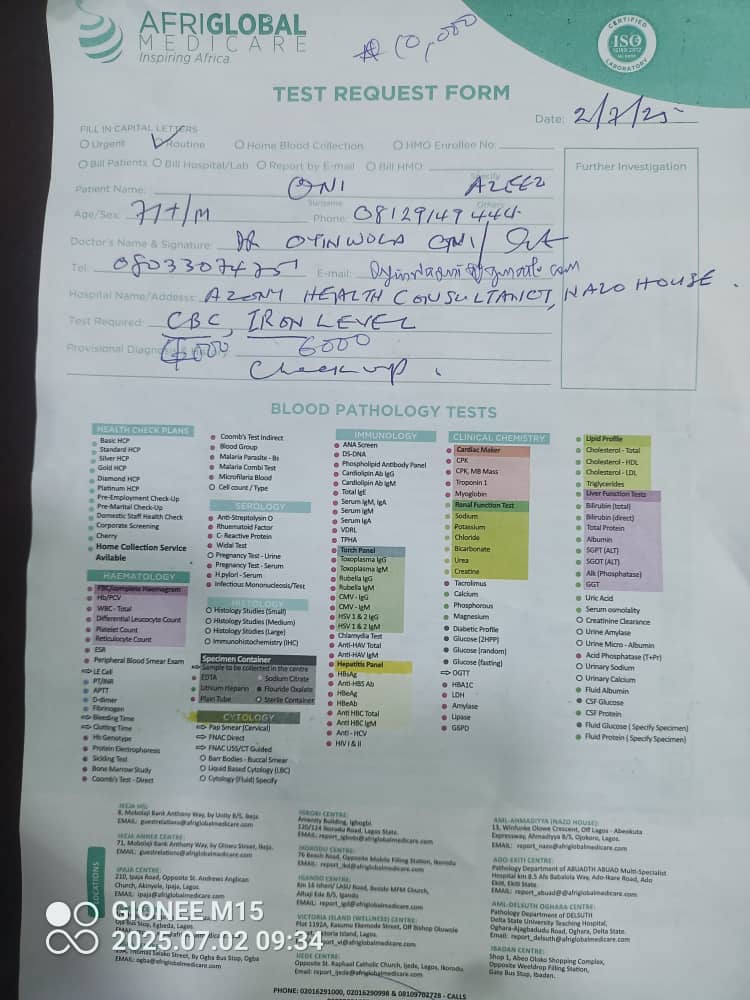 AFRIGLOBAL
MEDICARE
Inspiring Africa
₦10,000
CERTIFIED
ISO
LABORATORY
TEST REQUEST FORM
Date: 2/7/25
FILL IN CAPITAL LETTERS
Urgent Routine Home Blood Collection HMO Enrollee No:
Bill Patients Bill Hospital/Lab Report by E-mail Bill HMO Specify
Further Investigation
Patient Name: ONI AZEEZ
Surname Others
Age/Sex: 71+/M Phone: 08129149444
Doctor's Name & Signature: DR OYINWOLA ONI
Tel: 08033074751 E-mail:
Hospital Name/Address: AZONY HEALTH CONSULTANCY, NAZO HOUSE.
Test Required: CBC, IRON LEVEL
Provisional Diagnosis 4000 6000
Checkup.
BLOOD PATHOLOGY TESTS
HEALTH CHECK PLANS
Basic HCP
Standard HCP
Silver HCP
Gold HCP
Diamond HCP
Platinum HCP
Pre-Employment Check-Up
Pre-Marital Check-Up
Domestic Staff Health Check
Corporate Screening
Cherry
Home Collection Service
Avilable
HAEMATOLOGY
FBC/complete Haemogram
Hb/PCV
WBC - Total
Differential Leucocyte Count
Platelet Count
Reticulocyte Count
ESR
Peripheral Blood Smear Exam
LE Cell
PT/INR
APTT
D-dimer
Fibrinogen
Bleeding Time
Clotting Time
Hb Genotype
Protein Electrophoresis
Sickling Test
Bone Marrow Study
Coomb's Test - Direct
Coomb's Test Indirect
Blood Group
Malaria Parasite - Bs
Malaria Combi Test
Microfilaria Blood
Cell count / Type
SEROLOGY
Anti-Streptolysin O
Rhuematoid Factor
C- Reactive Protein
Widal Test
Pregnancy Test - Urine
Pregnancy Test - Serum
H.pylori - Serum
Infectious Mononucleosis/Test
HISTOLOGY
Histology Studies (Small)
Histology Studies (Medium)
Histology Studies (Large)
Immunohistochemistry (IHC)
Specimen Container
Sample to be collected in the centre
EDTA Sodium Citrate
Lithium Heparin Flouride Oxalate
Plain Tube Sterile Container
CYTOLOGY
Pap Smear (Cervical)
FNAC Direct
FNAC USS/CT Guided
Barr Bodies - Buccal Smear
Liquid Based Cytology (LBC)
Cytology (Fluid) Specify
IMMUNOLOGY
ANA Screen
DS-DNA
Phospholipid Antibody Panel
Cardiolipin Ab IgG
Cardiolipin Ab IgM
Total IgE
Serum IgM, IgA
Serum IgM
Serum IgA
VDRL
TPHA
Torch Panel
Toxoplasma IgG
Toxoplasma IgM
Rubella IgG
Rubella IgM
CMV - IgG
CMV - IgM
HSV 1 & 2 IgG
HSV 1 & 2 IgM
Chlamydia Test
Anti-HAV Total
Anti-HAV IgM
Hepatitis Panel
HBsAg
Anti-HBS Ab
HBeAg
HBeAb
Anti HBC Total
Anti HBC IgM
Anti - HCV
HIV I & II
CLINICAL CHEMISTRY
Cardiac Maker
CPK
CPK, MB Mass
Troponin 1
Myoglobin
Renal Function Test
Sodium
Potassium
Chloride
Bicarbonate
Urea
Creatine
Tacrolimus
Calcium
Phosphorous
Magnesium
Diabetic Profile
Glucose (2HPP)
Glucose (random)
Glucose (fasting)
OGTT
HBA1C
LDH
Amylase
Lipase
G6PD
Lipid Profile
Cholesterol - Total
Cholesterol - HDL
Cholesterol - LDL
Triglycerides
Liver Function Tests
Bilirubin (total)
Bilirubin (direct)
Total Protein
Albumin
SGPT (ALT)
SGOT (ALT)
Alk (Phosphatase)
GGT
Uric Acid
Serum osmolality
Creatinine Clearance
Urine Amylase
Urine Micro - Albumin
Acid Phosphatase (T+Pr)
Urinary Sodium
Urinary Calcium
Fluid Albumin
CSF Glucose
CSF Protein
Fluid Glucose ( Specify Specimen)
Fluid Protein ( Specify Specimen)
LOCATIONS
IKEJA HQ:
8, Mobolaji Bank Anthony Way, by Unity B/S, Ikeja.
EMAIL: guestrelations@afriglobalmedicare.com
IKEJA ANNEX CENTRE:
71, Mobolaji Bank Anthony Way, by Olowu Street, Ikeja.
EMAIL: guestrelations@afriglobalmedicare.com
IPAJA CENTRE:
210, Ipaja Road, Opposite St. Andrews Anglican
Church, Akinyele, Ipaja, Lagos.
EMAIL: ipaja@afriglobalmedicare.com
Bus Stop, Egbeda, Lagos.
Street, By Ogba Bus Stop, Ogba
EMAIL: ogba@afriglobalmedicare.com
IGBOBI CENTRE:
Amenity Building, Igbogbi
120/124 Ikorodu Road, Lagos State.
EMAIL: report_igbobi@afriglobalmedicare.com
IKORODU CENTRE:
76 Beach Road, Opposite Mobile Filling Station, Ikorodu
EMAIL: report_ikd@afriglobalmedicare.com
IGANDO CENTRE:
Km 16 Iyana/ LASU Road, Beside MFM Church,
EMAIL: report_igd@afriglobalmedicare.com
VICTORIA ISLAND (WELLNESS) CENTRE:
Plot 1192A, Kasumu Ekemode Street, Off Bishop Oluwole
Victoria Island, Lagos.
report_vi@afriglobalmedicare.com
IJEDE CENTRE:
Opposite St. Raphael Catholic Church, Ijede, Lagos, Ikorodu
Email: report_ijede@afriglobalmedicare.com
AML-AHMADIYYA (NAZO HOUSE):
13, Winfunke Olowe Crescent, Off Lagos - Abeokuta
Expressway, Ahmadiyya B/S, Ojokoro, Lagos.
EMAIL: report_nazo@afriglobalmedicare.com
ADO-EKITI CENTRE:
Pathology Department of ABUADTH ABUAD Multi-Specialist
Hospital km 8.5 Afe Babalola Way, Ado-Ikare Road, Ado
Ekiti, Ekiti State.
EMAIL: report_abuad@afriglobalmedicare.com
AML-DELSUTH OGHARA CENTRE:
Pathology Department of DELSUTH
Delta State University Teaching Hospital,
Oghara-Ajagbadudu Road, Oghara, Delta State.
Email: report_delsuth@afriglobalmedicare.com
IBADAN CENTRE:
Shop 1, Abeo Oloko Shopping Complex,
Opposite Weeldrop Filling Station,
Gate Bus Stop, Ibadan.
PHONE: 02016291000, 02016290998 & 08109702728 - CALLS
GIONEE M15
2025.07.02 09:34